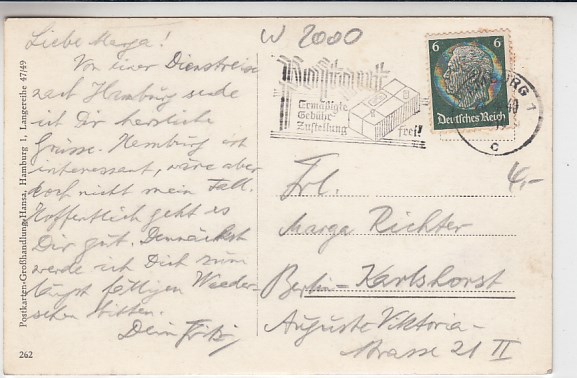 Liebe Marga!
Von einer Dienstreise
nach Hamburg sende
ich Dir herzliche
Grüsse. Hamburg ist
interessant, wäre aber
doch nicht mein Fall.
Hoffentlich geht es
Dir gut. Demnächst
werde ich Dich zum
längst fälligen Wieder-
sehen bitten.
Dein Fritz
Postkarten-Großhandlung Hansa, Hamburg 1, Langereihe 47/49
262
W 2000
Postgut
Ermäßigte
Gebühr
Zustellung frei!
6 6
Deutsches Reich
BURG 1
c
4,-
Frl.
Marga Richter
Berlin-Karlshorst
Auguste Viktoria-
strasse 21 II